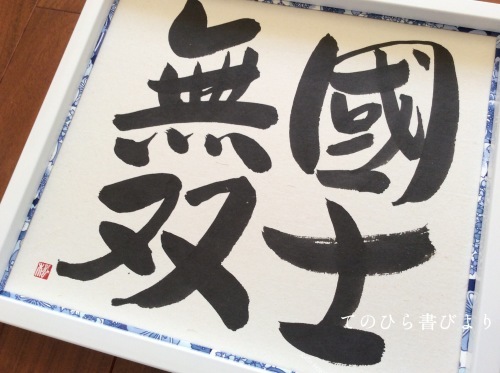 國士
無双
てのひら書びより